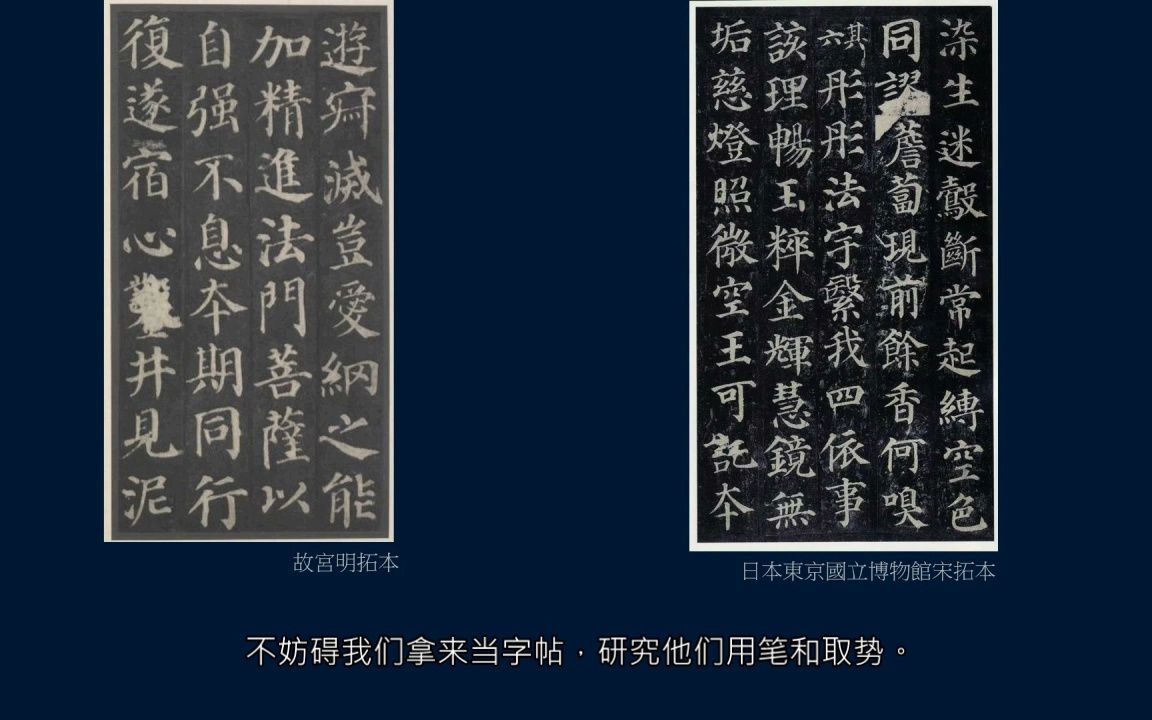 遊寂滅豈愛網之能
加精進法門菩薩以
自强不息夲期同行
復遂宿心鑿井見泥
故宮明拓本
染生迷鷇斷常起縛空色
同謬薝蔔現前餘香何嗅
其六彤彤法宇繄我四依事
該理暢玉粹金輝慧鏡無
垢慈燈照微空王可託夲
日本東京國立博物館宋拓本
不妨碍我们拿来当字帖，研究他们用笔和取势。